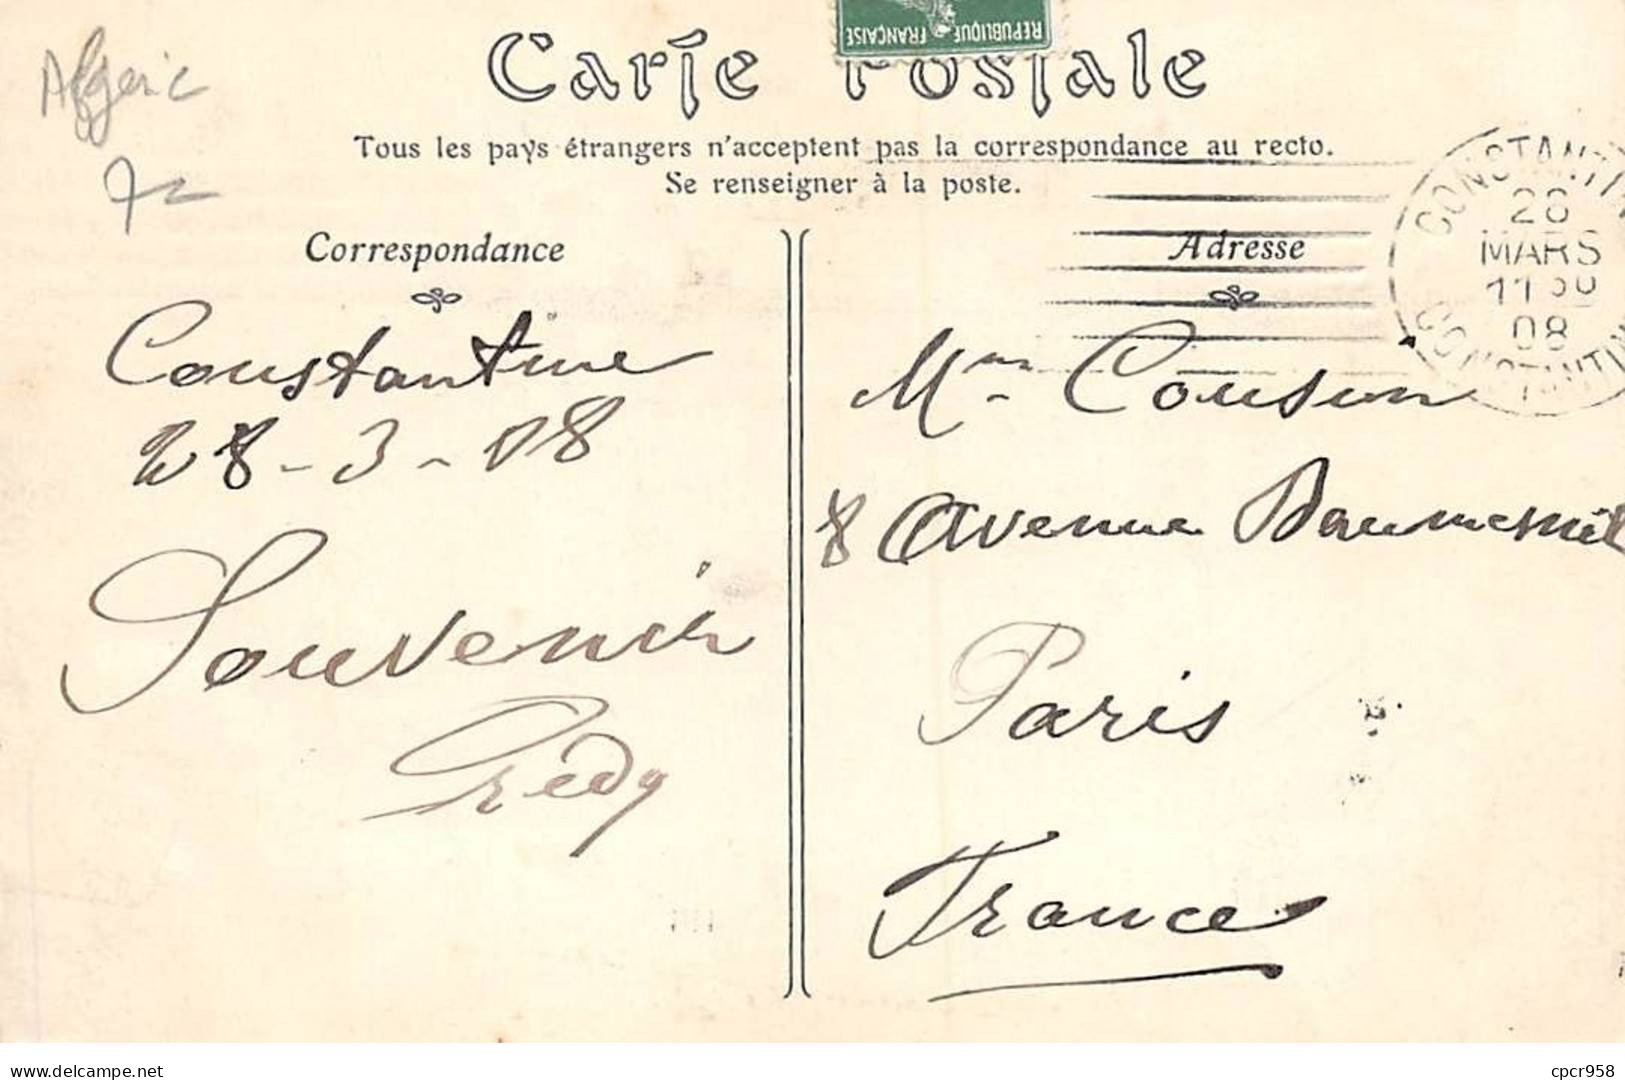 RÉPUBLIQUE FRANÇAISE
Carte Postale
Algerie
Tous les pays étrangers n'acceptent pas la correspondance au recto.
Se renseigner à la poste.
CONSTANTIN
28
MARS
11
08
CONSTANTIN
Correspondance
Constantine
28-3-08
Souvenir
Grédy
Adresse
Mme Cousin
8 Avenue Daumesnil
Paris
France
delcampe.net
cpcr958